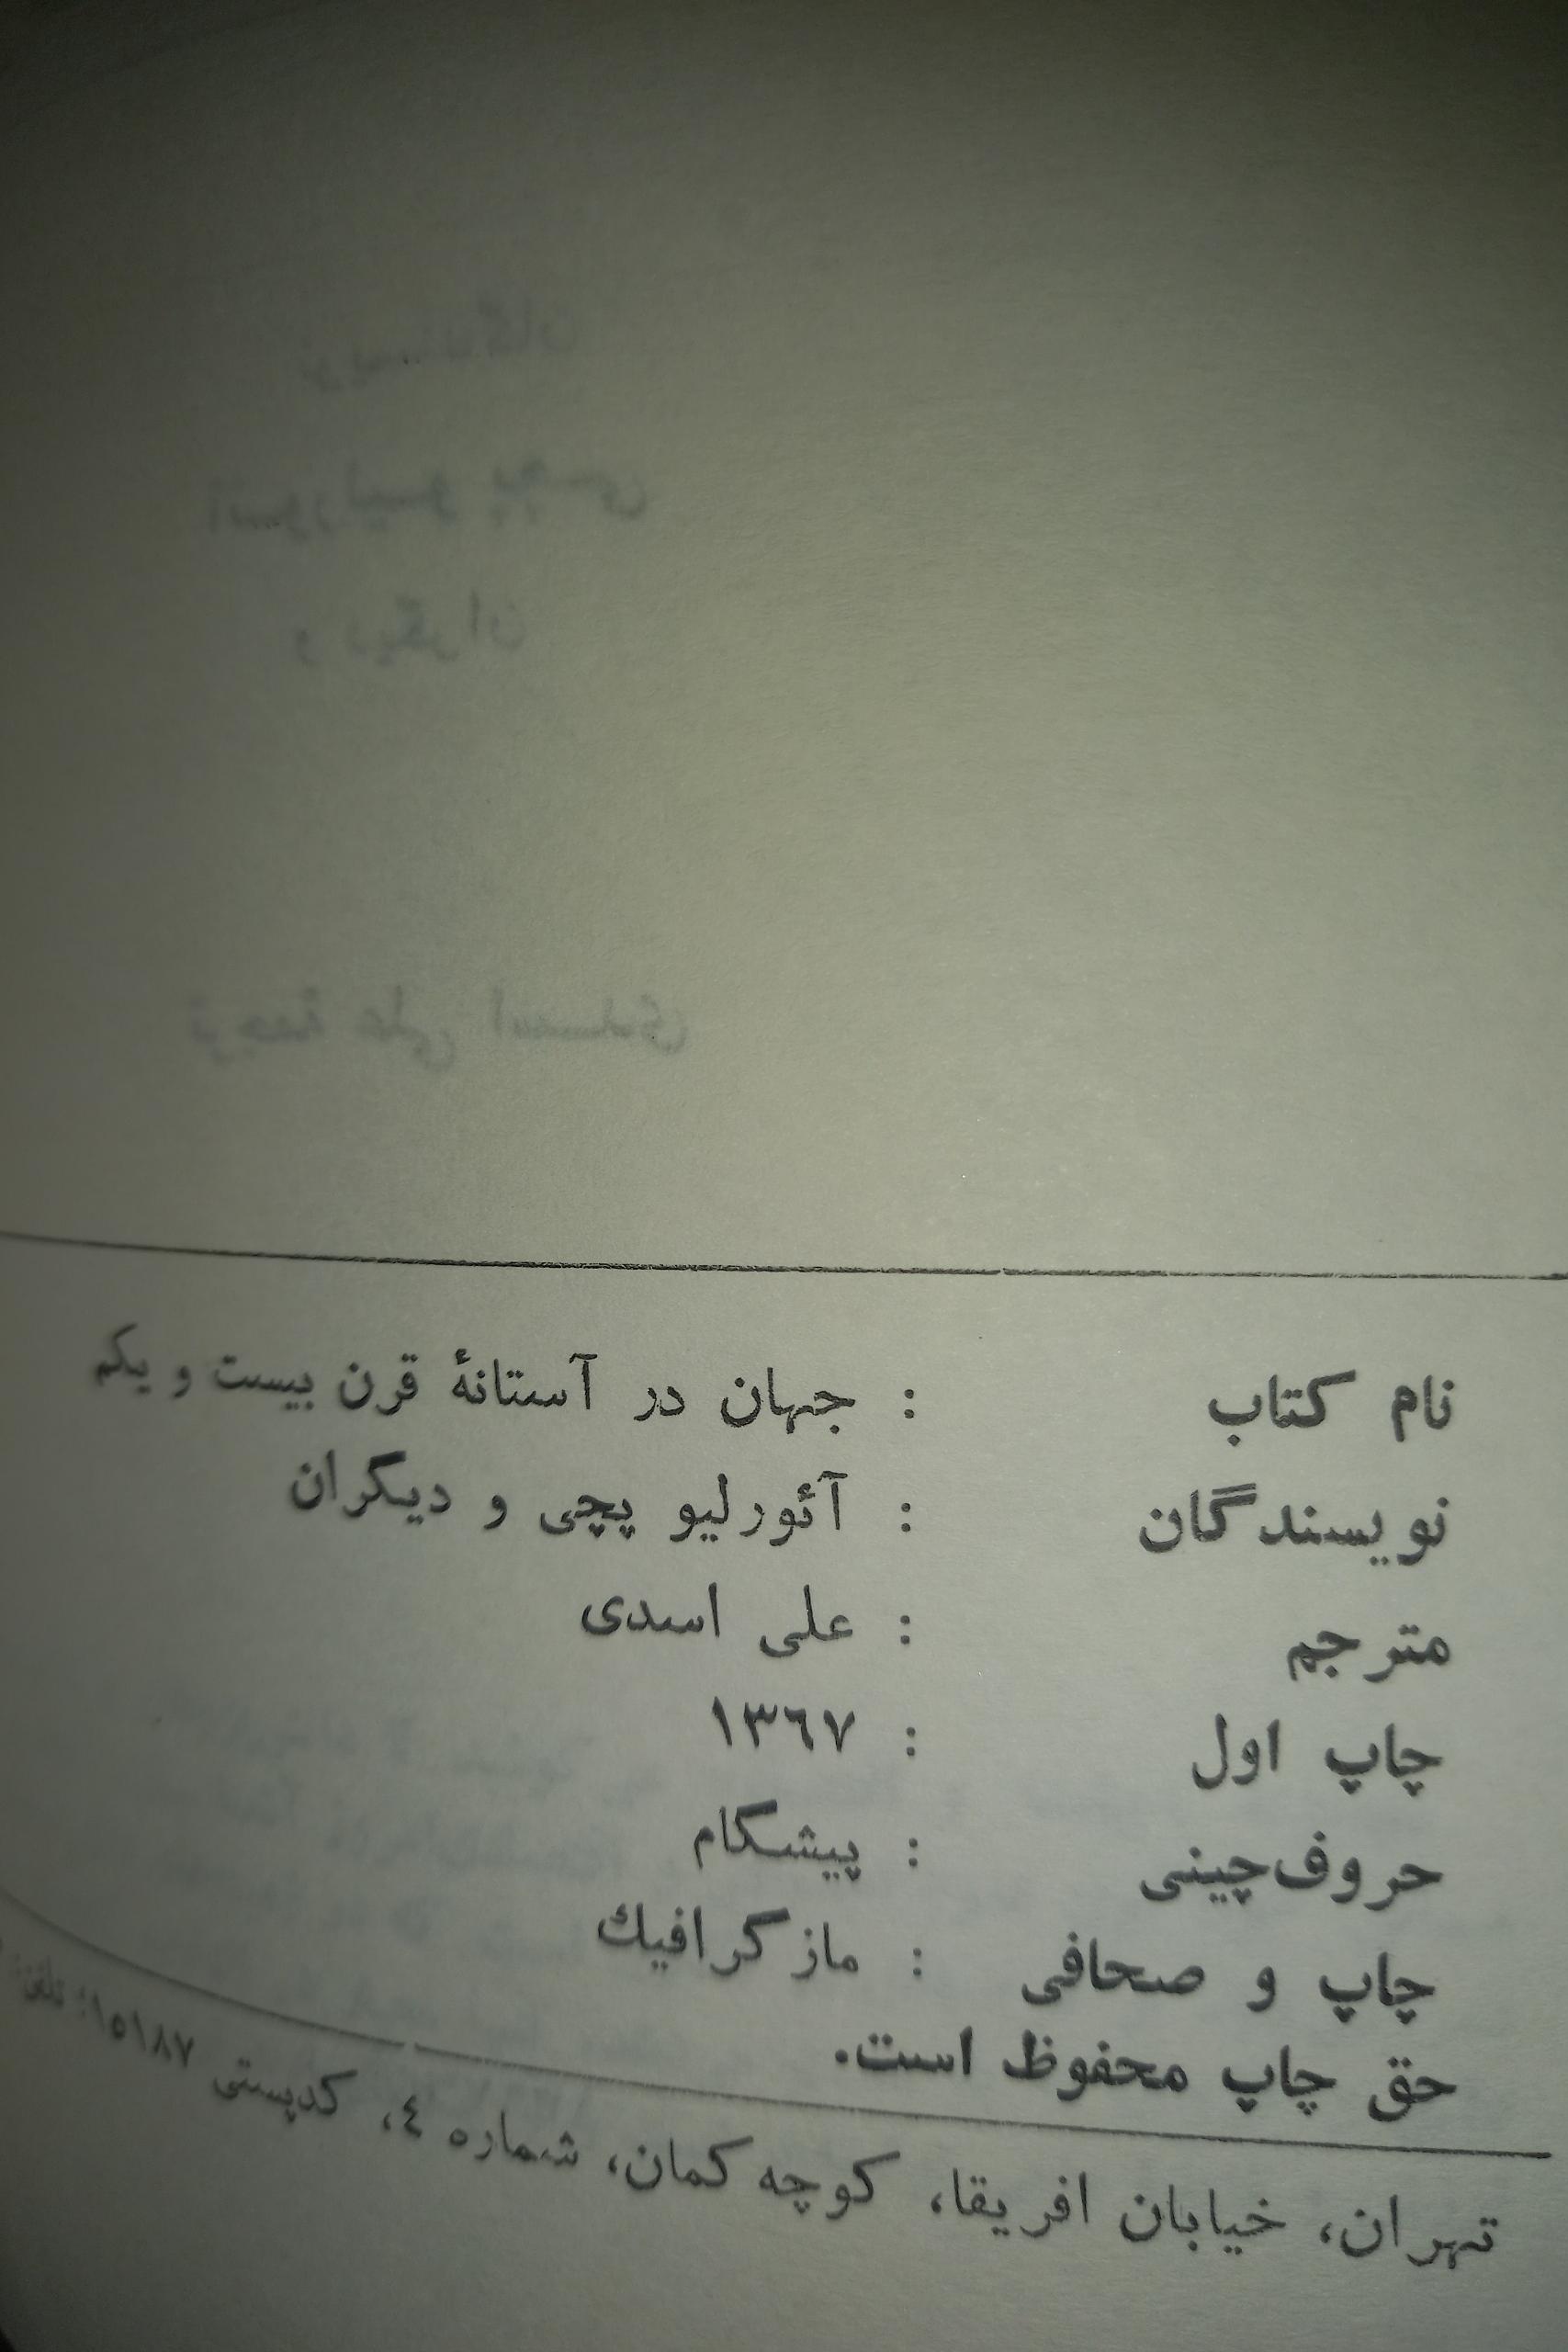 نام کتاب : جهان در آستانهٔ قرن بیست و یکم
نویسندگان : آئورلیو پچی و دیگران
مترجم : علی اسدی
چاپ اول : ۱۳۶۷
حروف‌چینی : پیشگام
چاپ و صحافی : مازگرافیك
حق چاپ محفوظ است.
تهران، خیابان افریقا، کوچه کمان، شماره ٤، کدپستی ۱۵۱۸۷؛ تلفن: